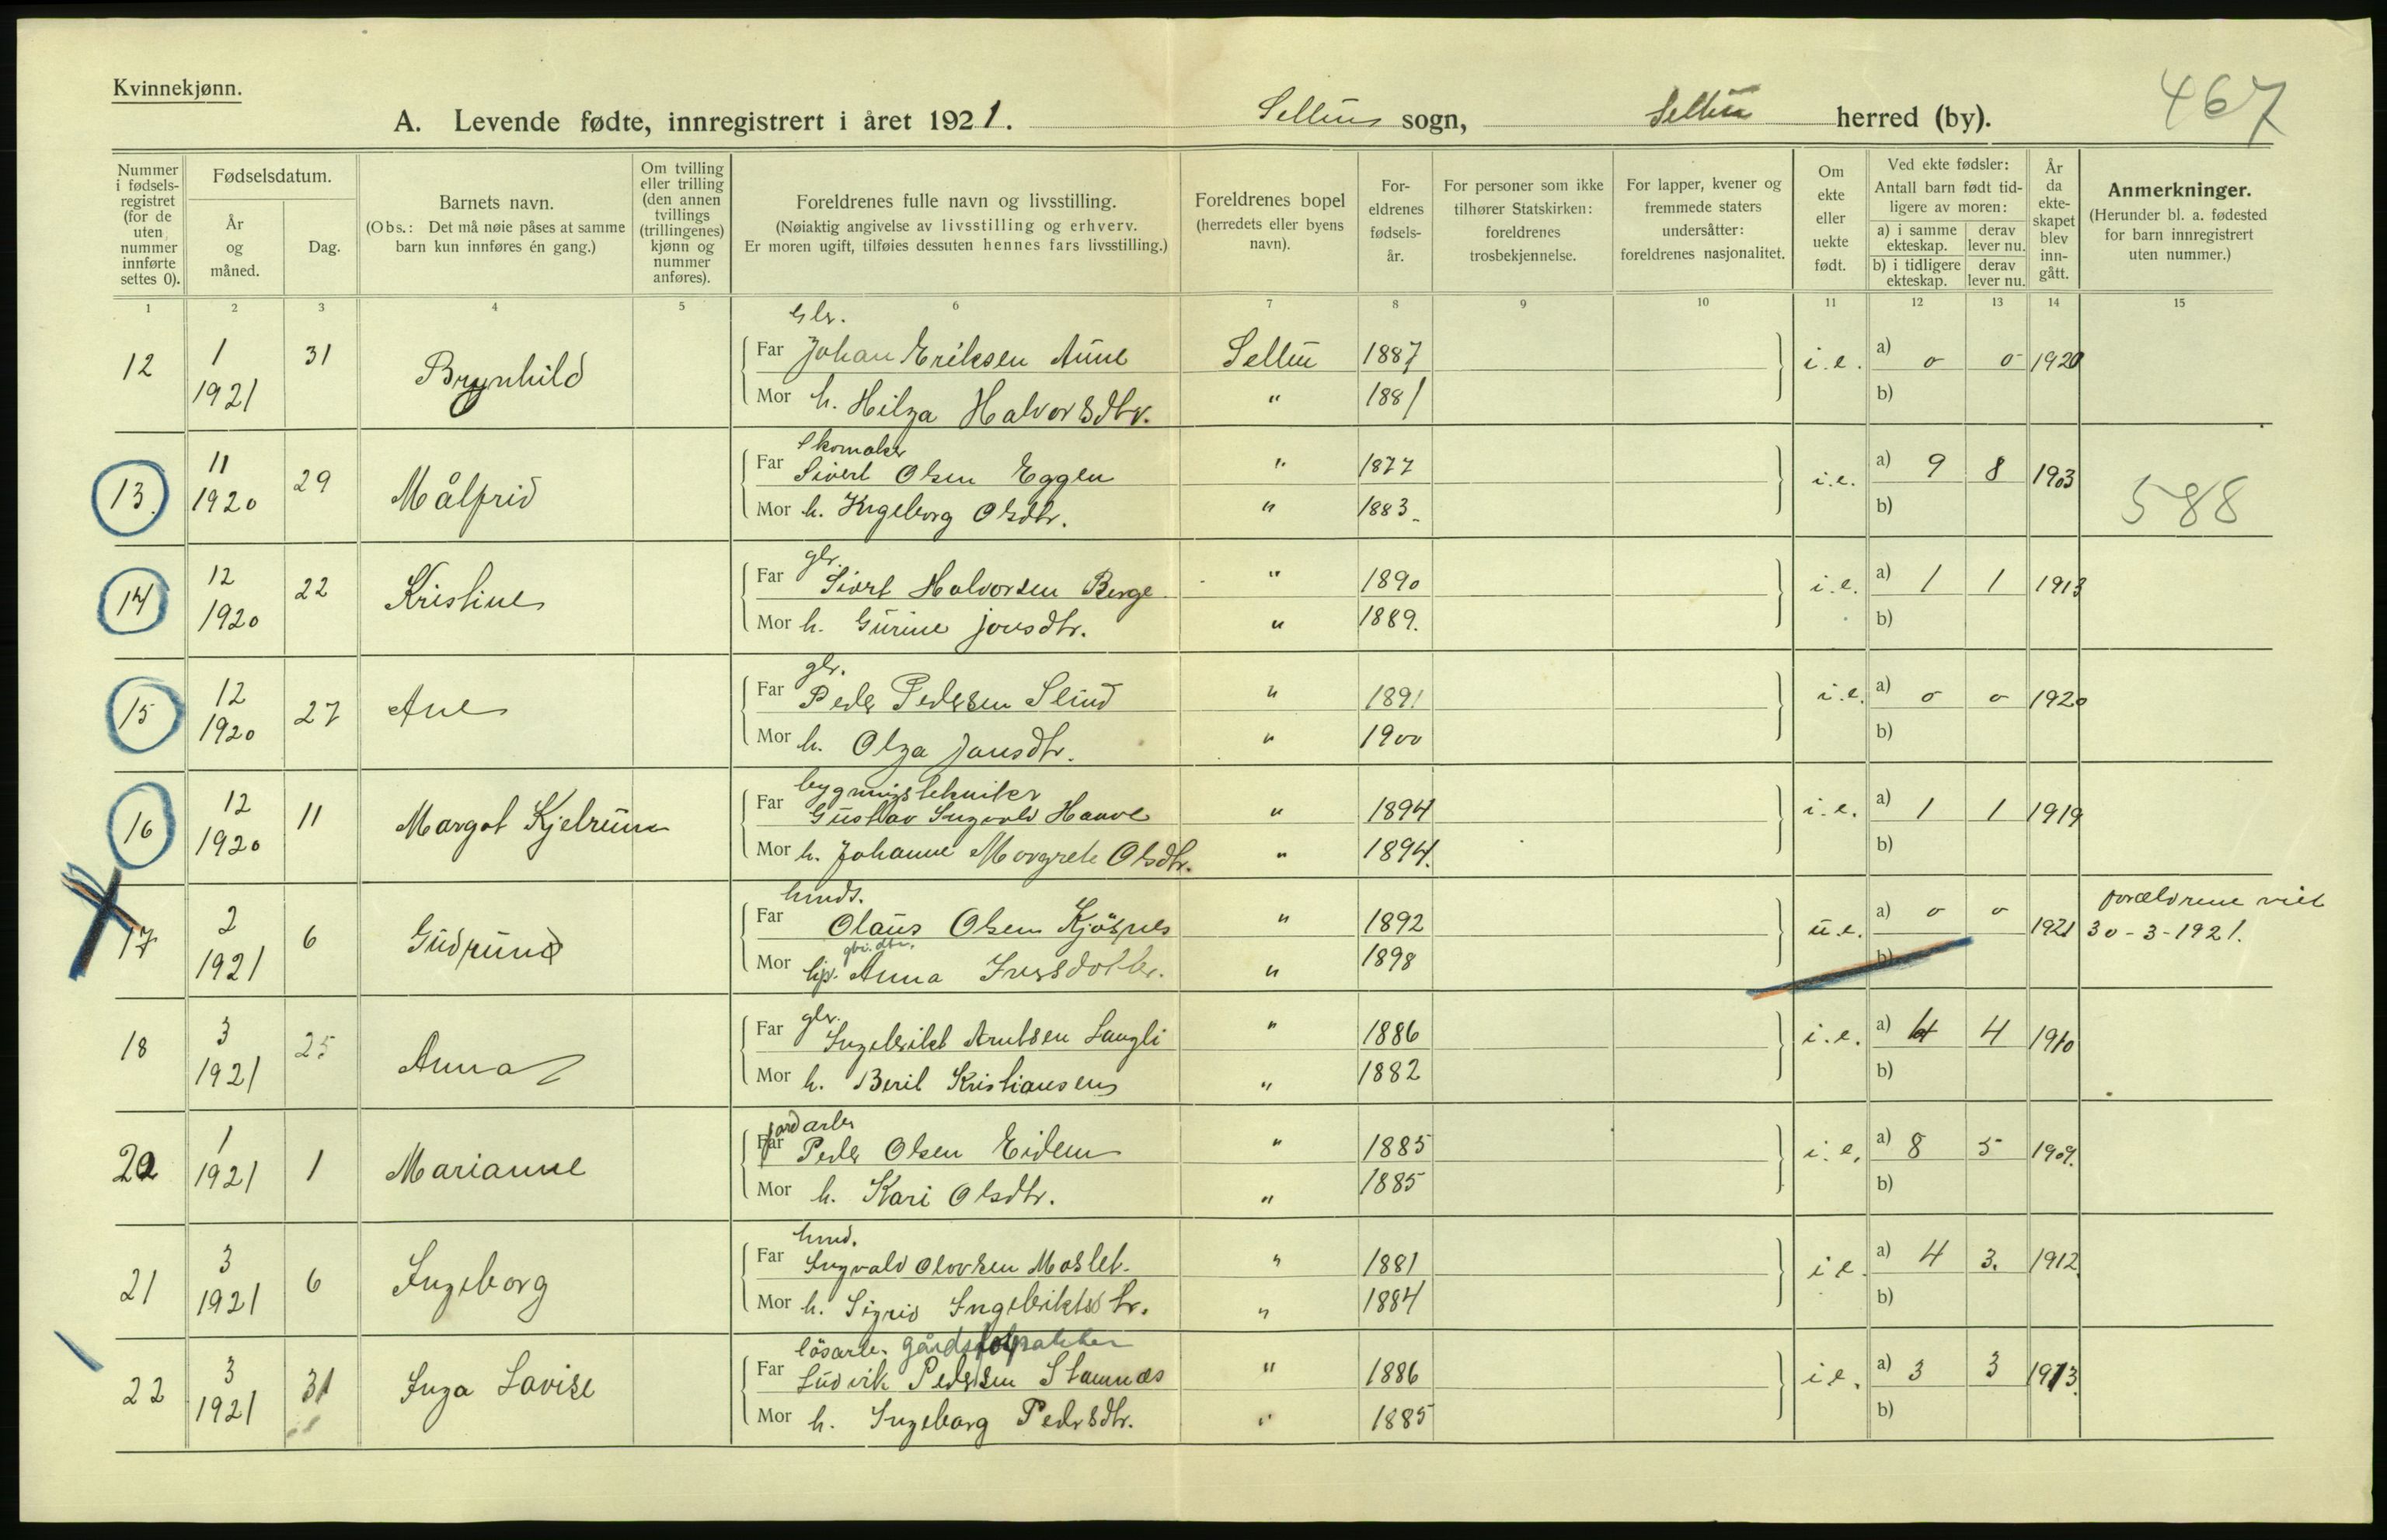 Kvinnekjønn.
467
A. Levende fødte, innregistrert i året 1921. Selbu sogn, Selbu herred (by).
Nummer i fødsels-registret (for de uten nummer innførte settes 0).
Fødselsdatum.
År og måned.
Dag.
Barnets navn.
(Obs.: Det må nøie påses at samme barn kun innføres én gang.)
Om tvilling eller trilling (den annen tvillings (trillingenes) kjønn og nummer anføres).
Foreldrenes fulle navn og livsstilling.
(Nøiaktig angivelse av livsstilling og erhverv. Er moren ugift, tilføies dessuten hennes fars livsstilling.)
Foreldrenes bopel (herredets eller byens navn).
For-eldrenes fødsels-år.
For personer som ikke tilhører Statskirken: foreldrenes trosbekjennelse.
For lapper, kvener og fremmede staters undersåtter: foreldrenes nasjonalitet.
Om ekte eller uekte født.
Ved ekte fødsler:
Antall barn født tid-ligere av moren:
a) i samme ekteskap. derav lever nu.
b) i tidligere ekteskap. derav lever nu.
År da ekte-skapet blev inn-gått.
Anmerkninger.
(Herunder bl. a. fødested for barn innregistrert uten nummer.)
1 2 3 4 5 6 7 8 9 10 11 12 13 14 15
glr.
12 1 1921 31 Brynhild Far Johan Eriksen Aune Selbu 1887 i.e. a) o o 1920
Mor h. Hilga Halvorsdtr. " 1881 b)
Skomaker
13. 11 1920 29 Målfrid Far Sivert Olsen Eggen " 1877 i.e. a) 9 8 1903 588
Mor h. Ingeborg Olsdtr. " 1883 b)
glr.
14 12 1920 22 Kristine Far Sivert Halvorsen Berge " 1890 i.e. a) 1 1 1913
Mor h. Gurine Jonsdtr. " 1889. b)
glr.
15 12 1920 27 Ane Far Peder Pedersen Slind " 1891 i.e. a) o o 1920
Mor h. Olga Jonsdtr. " 1900 b)
bygningstekniker
16 12 1920 11 Margot Kjelrun Far Gustav Ingvald Haave " 1894 i.e. a) 1 1 1919
Mor h. Johanne Margrete Olsdtr. " 1894. b)
17 2 1921 6 Gudrun Far Olaus Olsen Kjøsnes " 1892 u.e. a) o o 1921 forældrene viet 30-3-1921.
Mor Anna Iversdotter. " 1898 b)
glr.
18 3 1921 25 Anna Far Ingebrikt Arntsen Langli " 1886 i.e. a) 4 4 1910
Mor h. Berit Kristiansen " 1882 b)
jordarbr
20 1 1921 1 Marianne Far Peder Olsen Eidem " 1885 i.e. a) 8 5 1909.
Mor h. Kari Olsdtr. " 1885 b)
21 3 1921 6 Ingeborg Far Ingvald Olovsen Moslet. " 1881 i.e. a) 4 3. 1912.
Mor h. Sigrid Ingebriktsdtr. " 1884 b)
løsarb.
22 3 1921 31 Inga Lovise Far Ludvik Pedersen Stamnæs " 1886 i.e. a) 3 3 1913.
Mor h. Ingeborg Pedersdtr. " 1885 b)